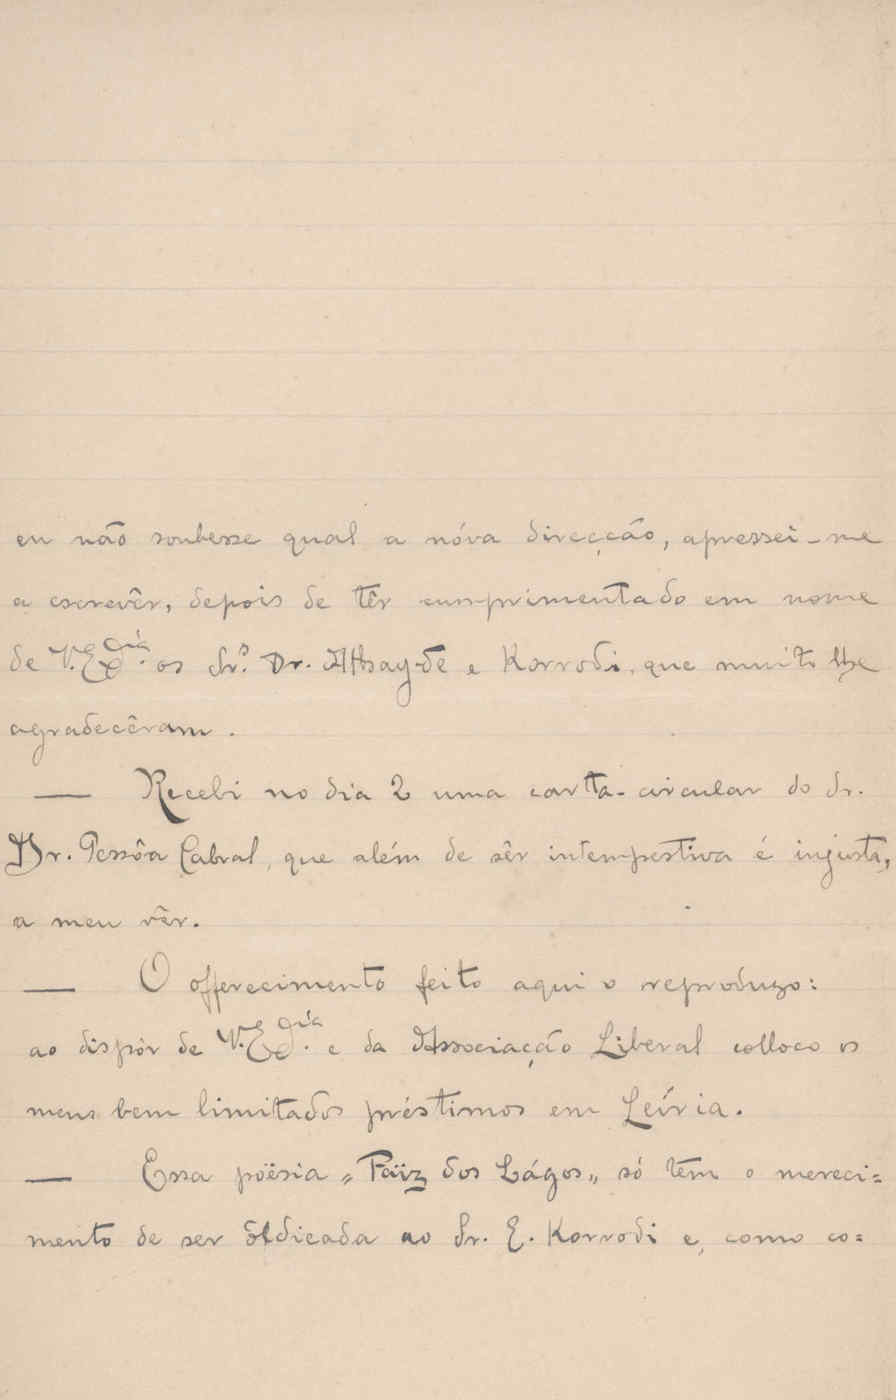 eu não soubesse qual a nóva direcção, apressei-me
a escrevêr, depois de têr cumprimentado em nome
de V. Exciª. os Srs. Dr. Athayde e Korrodi, que muito lhe
agradecêram.
— Recebi no dia 2 uma carta-circular do sr.
Dr. Pessôa Cabral, que além de sêr intempestiva é injusta,
a meu vêr.
— O offerecimento feito aqui o reproduzo:
ao dispôr de V. Exciª. e da Associação Liberal colloco os
meus bem limitados préstimos em Leíria.
— Essa poësia „Païz dos Lágos„ só tem o mereci=
mento de ser dedicada ao Sr. E. Korrodi e, como co=